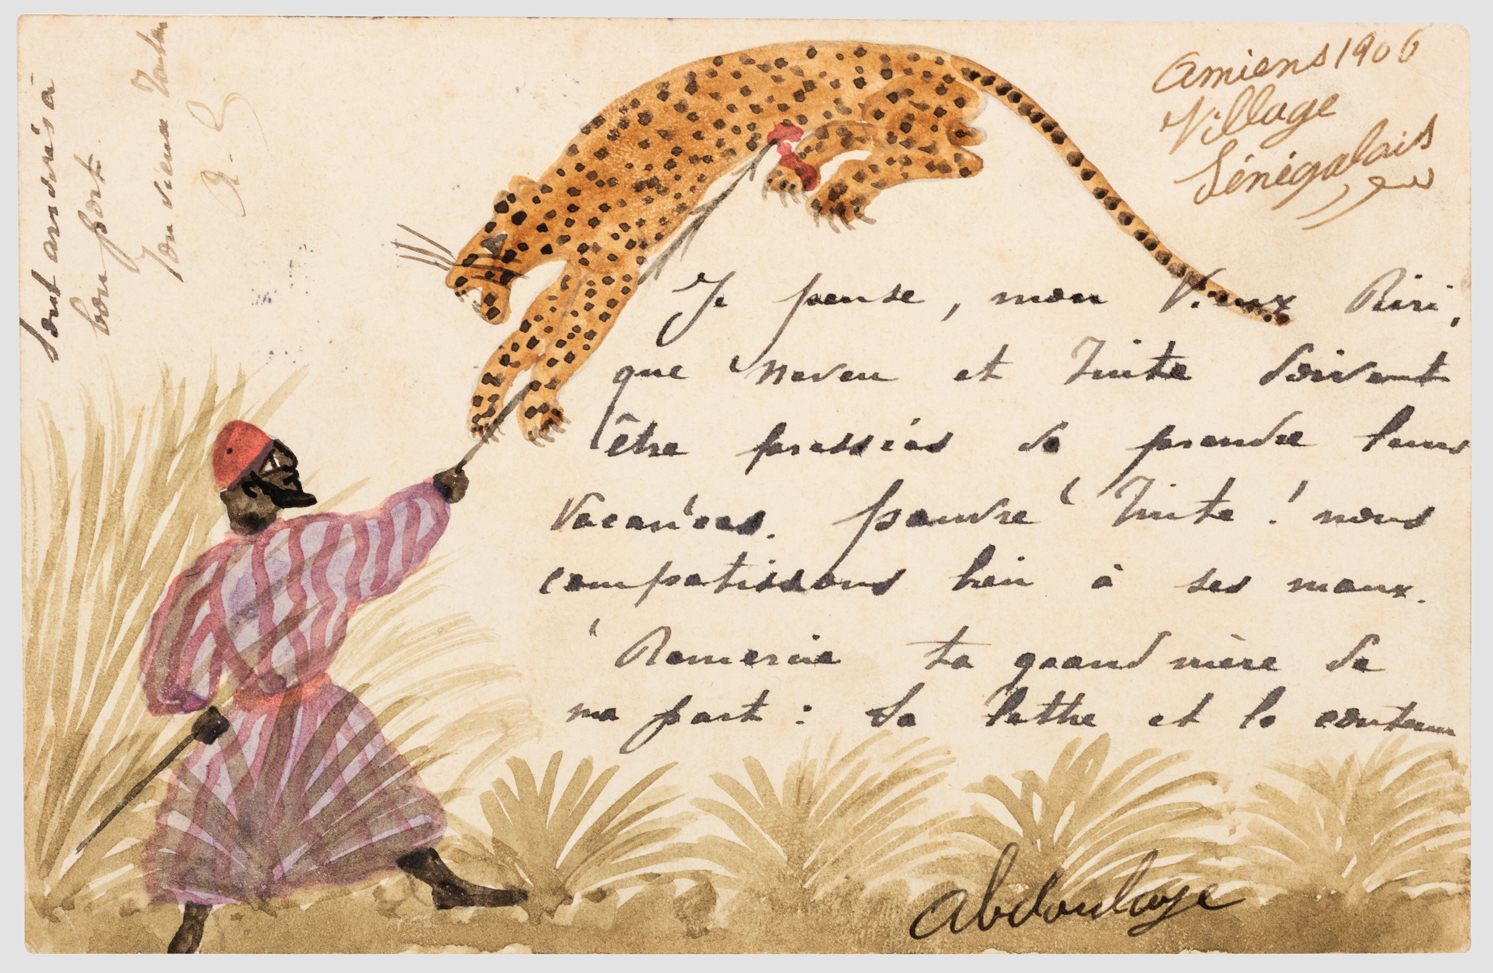 Amiens 1906
Village
Sénégalais
Je pense, mon Vieux Riri,
que Neveu et Tinte doivent
être pressés de prendre leurs
vacances. pauvre Tinte ! nous
compatissons bien à ses maux.
Remercie ta grand mère de
ma part : La lettre et le contenu
sont arrivés à
bon port.
Ton vieux
Abdoulaye